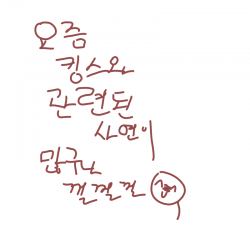 요즘
킹스와
관련된
사연이
많구나
껄껄껄